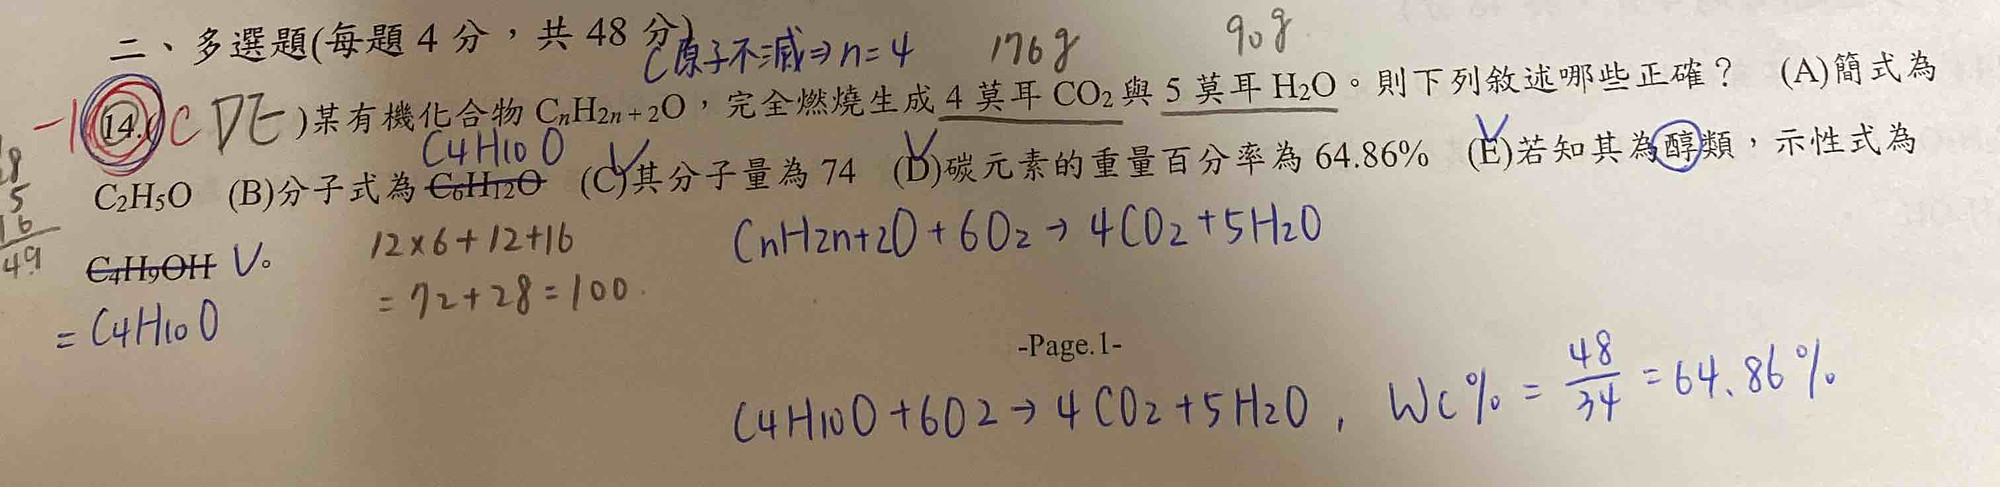 二、多選題(每題 4 分，共 48 分)
C原子不滅⇒n=4 176g 90g
-1 (14.(CDE)某有機化合物 CnH2n+2O，完全燃燒生成 4 莫耳 CO2 與 5 莫耳 H2O。則下列敘述哪些正確？ (A)簡式為
C4H10O
C2H5O (B)分子式為 C6H12O (C)其分子量為 74 (D)碳元素的重量百分率為 64.86% (E)若知其為醇類，示性式為
C4H9OH V。
= C4H10O
12×6+12+16
=72+28=100
CnH2n+2O+6O2→4CO2+5H2O
-Page.1-
C4H10O+6O2→4CO2+5H2O, Wc%=48/34=64.86%